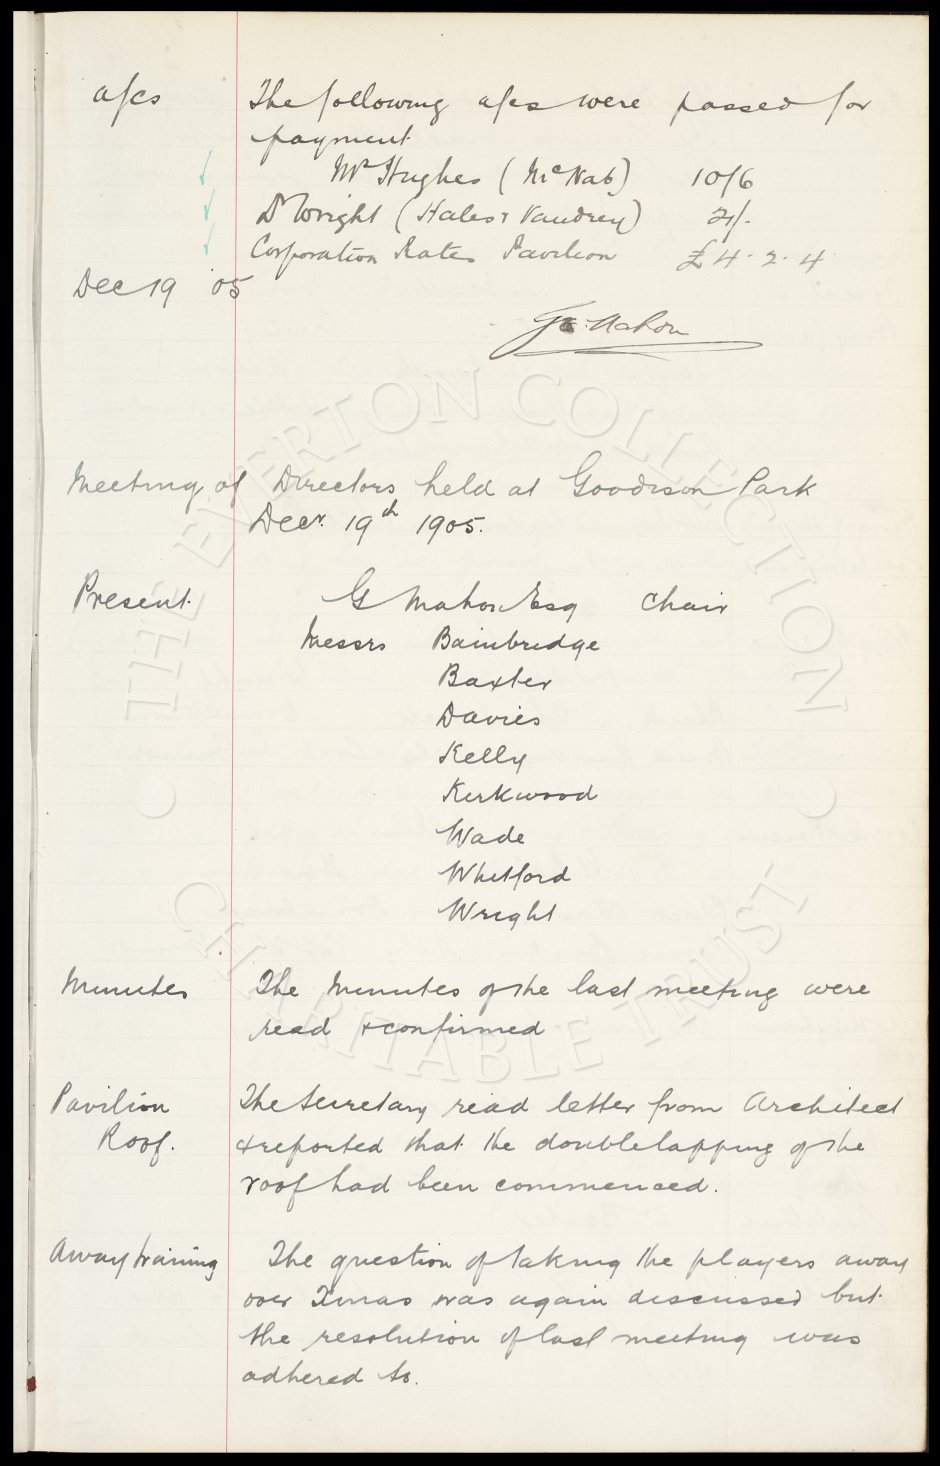 a/cs The following a/cs were passed for
payment
Mr Hughes (McNab) 10/6
Dr Wright (Hales & Vaudrey) 21/-
Corporation Rates Pavilion £4.2.4
Dec 19 '05
Geo. Mahon
Meeting of Directors held at Goodison Park
Decr. 19th 1905.
Present. G Mahon Esq Chair
Messrs Bainbridge
Baxter
Davies
Kelly
Kirkwood
Wade
Whitford
Wright
Minutes The Minutes of the last meeting were
read & confirmed
Pavilion The Secretary read letter from Architect
Roof. & reported that the doublelapping of the
roof had been commenced.
Away training The question of taking the players away
over Xmas was again discussed but
the resolution of last meeting was
adhered to.
THE EVERTON COLLECTION
CHARITABLE TRUST